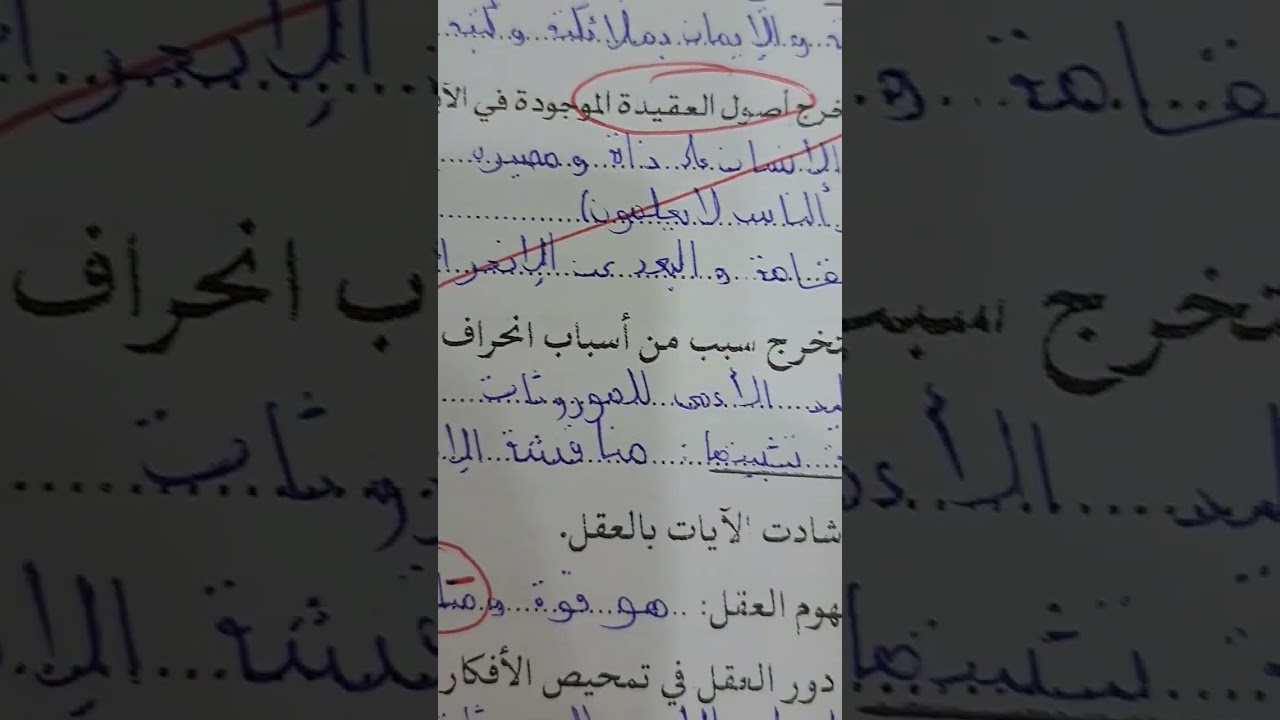 و الإيمان بملائكته و كتبه
خرج أصول العقيدة الموجودة في الآ
الأنسان على ذاة و مصيره
ألناس لا يعلمون)
قامة و البعد عن الإنحرا
تخرج سبب من أسباب انحراف
الأعمى للموروثات
تشبيتها: مناقشة الإ
شادت الآيات بالعقل.
هوم العقل: هو قوة و
دور العقل في تمحيص الأفكار